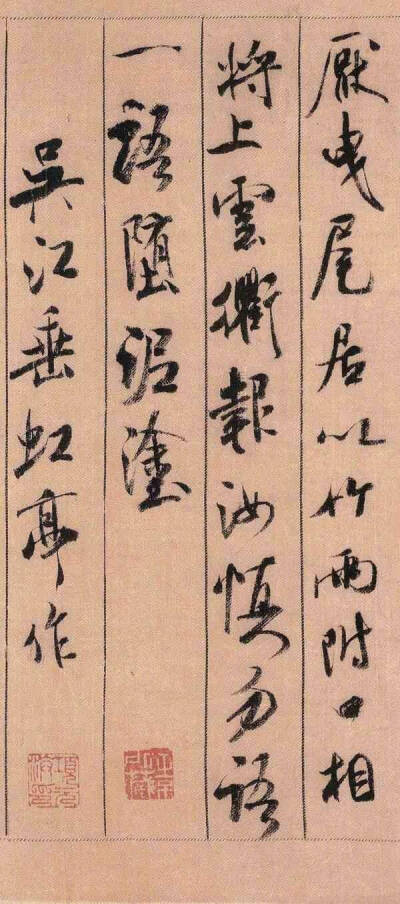 厭曳尾居以竹兩附口相
將上雲衢報汝慎勿語
一語墮泥塗
吳江垂虹亭作